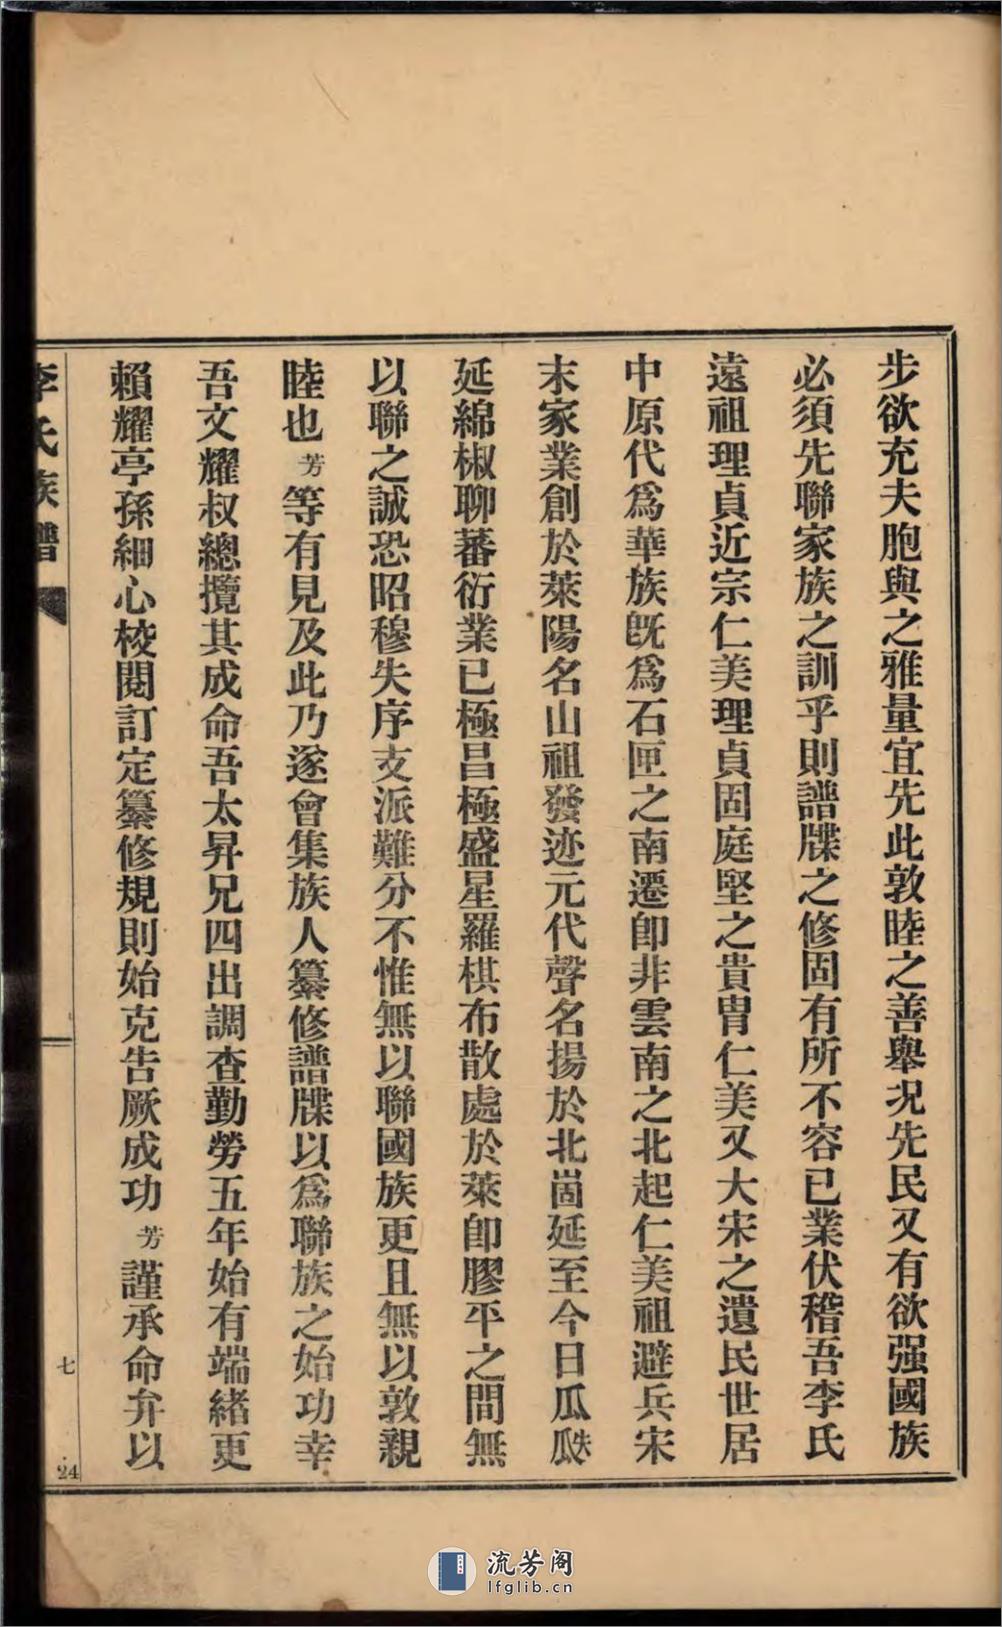 步欲充夫胞與之雅量宜先此敦睦之善舉况先民又有欲强國族
必須先聯家族之訓乎則譜牒之修固有所不容已業伏稽吾李氏
遠祖理貞近宗仁美理貞固庭堅之貴胄仁美又大宋之遺民世居
中原代爲華族旣爲石匣之南遷卽非雲南之北起仁美祖避兵宋
末家業創於萊陽名山祖發迹元代聲名揚於北崮延至今日瓜瓞
延綿椒聊蕃衍業已極昌極盛星羅棋布散處於萊卽膠平之間無
以聯之誠恐昭穆失序支派難分不惟無以聯國族更且無以敦親
睦也芳等有見及此乃遂會集族人纂修譜牒以爲聯族之始功幸
吾文耀叔總攬其成命吾太昇兄四出調查勤勞五年始有端緒更
賴耀亭孫細心校閱訂定纂修規則始克告厥成功芳謹承命弁以
李氏族譜
七
24
流芳阁
lfglib.cn